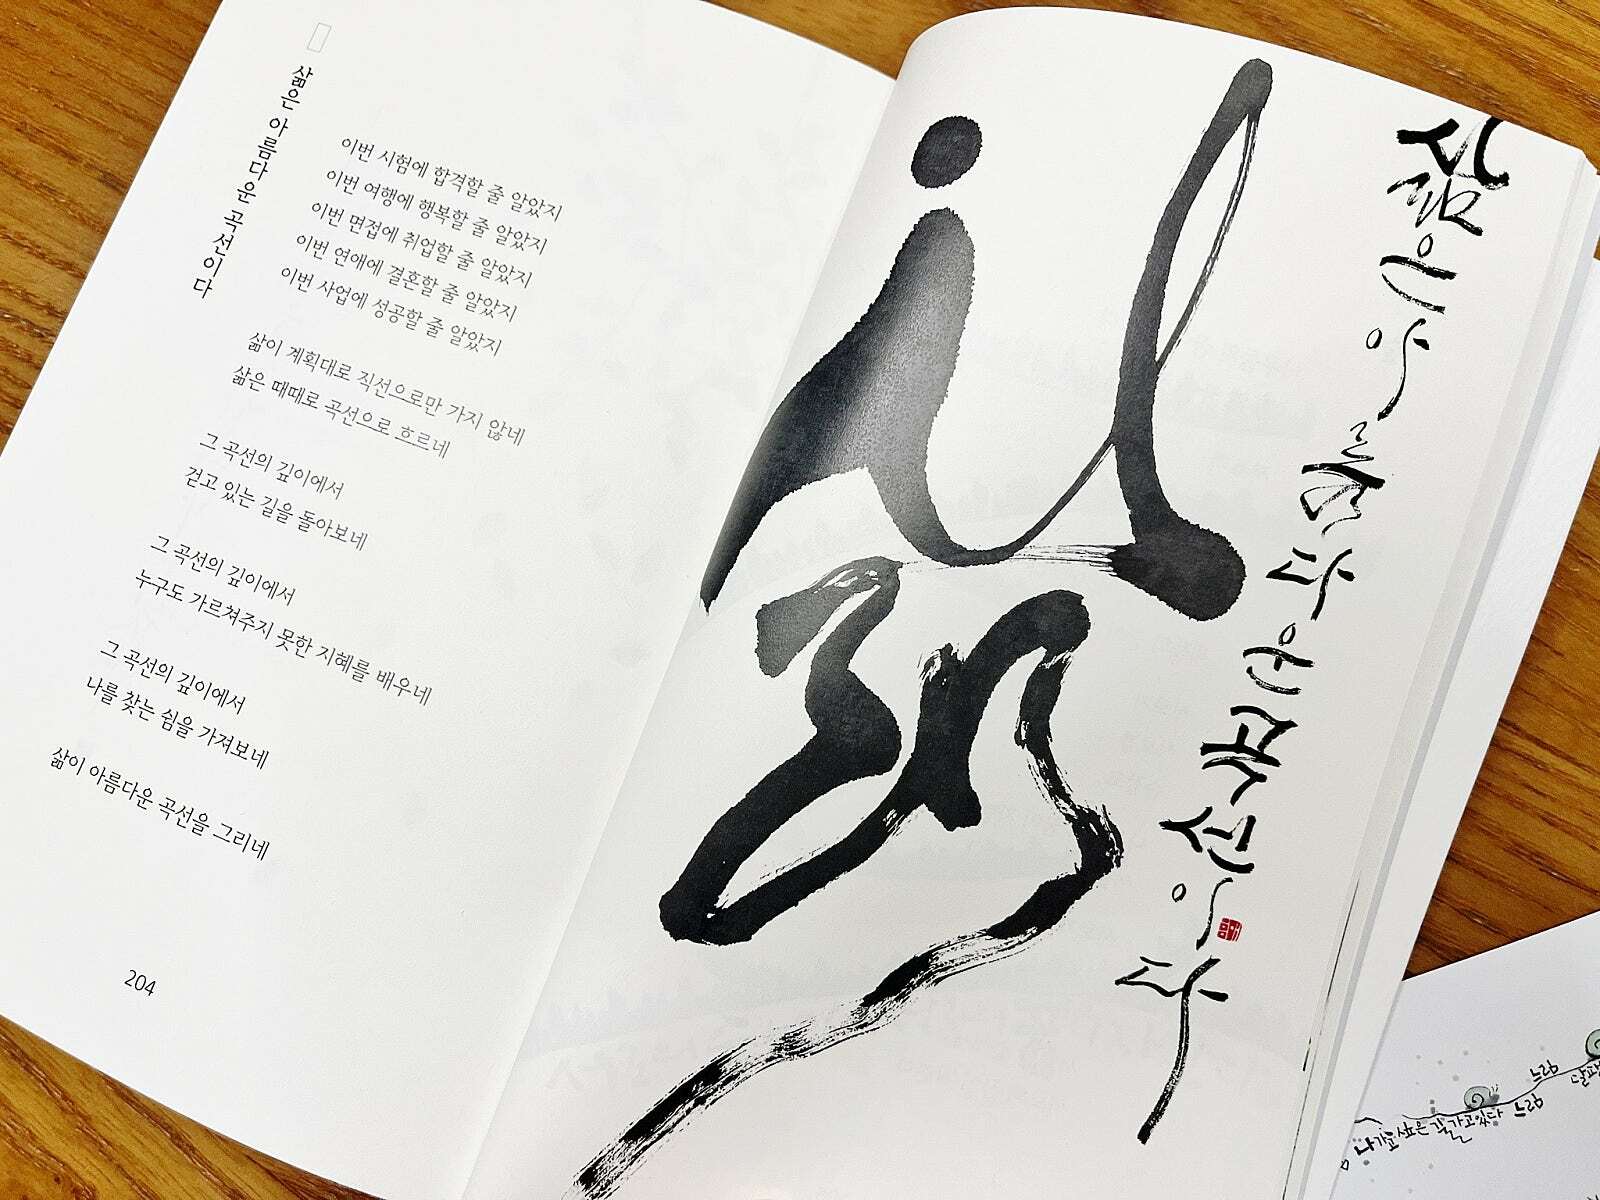 삶은 아름다운 곡선이다
이번 시험에 합격할 줄 알았지
이번 여행에 행복할 줄 알았지
이번 면접에 취업할 줄 알았지
이번 연애에 결혼할 줄 알았지
이번 사업에 성공할 줄 알았지
삶이 계획대로 직선으로만 가지 않네
삶은 때때로 곡선으로 흐르네
그 곡선의 깊이에서
걷고 있는 길을 돌아보네
그 곡선의 깊이에서
누구도 가르쳐주지 못한 지혜를 배우네
그 곡선의 깊이에서
나를 찾는 쉼을 가져보네
삶이 아름다운 곡선을 그리네
204
삶
삶은아름다운곡선이다
느림
느림